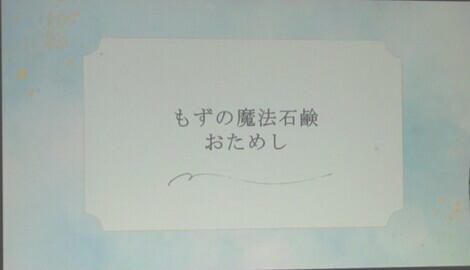 もずの魔法石鹸
おためし